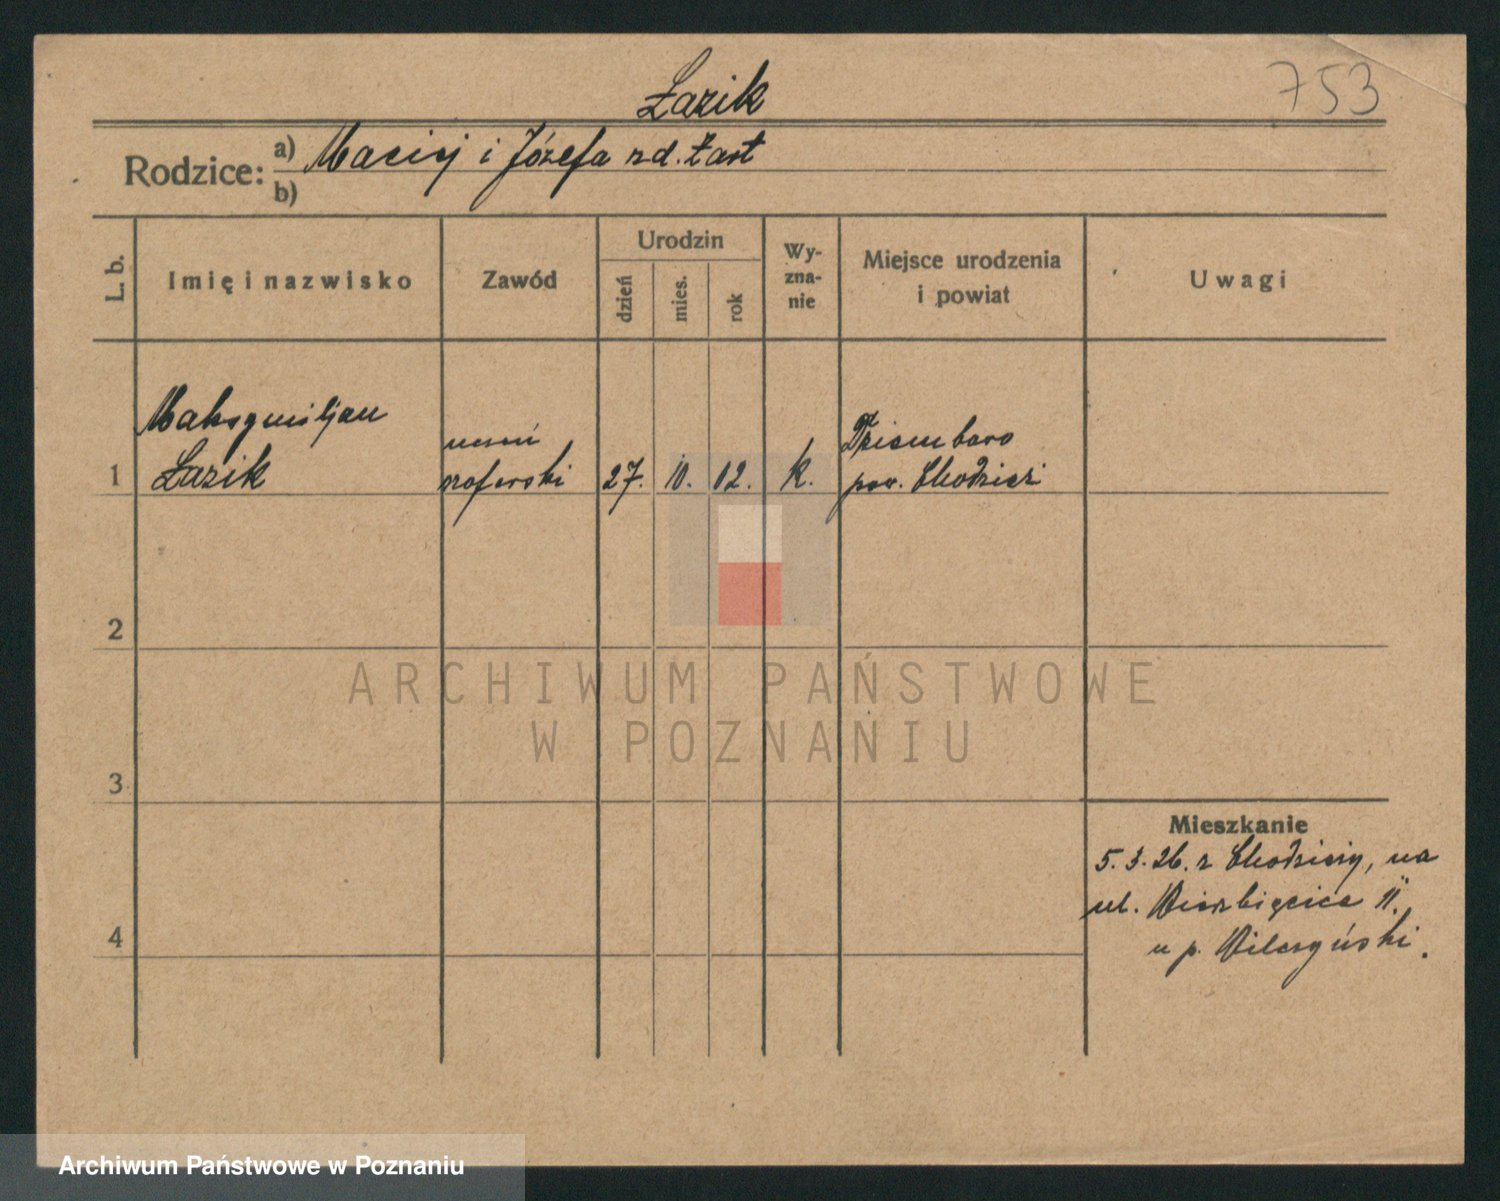 Łazik
753
Rodzice: a) Maciej i Józefa zd. Łast
b)
L. b.
Imię i nazwisko
Zawód
Urodzin
dzień
mies.
rok
Wy-
zna-
nie
Miejsce urodzenia
i powiat
Uwagi
Maksymiljan
1 Łazik
uczeń
szoferski
27. 10. 12. k.
Dziembowo
pow. Chodzież
2
3
4
Mieszkanie
5.3.26. z Chodzieży, na
ul. Wierzbięcice 11.
u p. Wilczyński.
ARCHIWUM PAŃSTWOWE
W POZNANIU
Archiwum Państwowe w Poznaniu